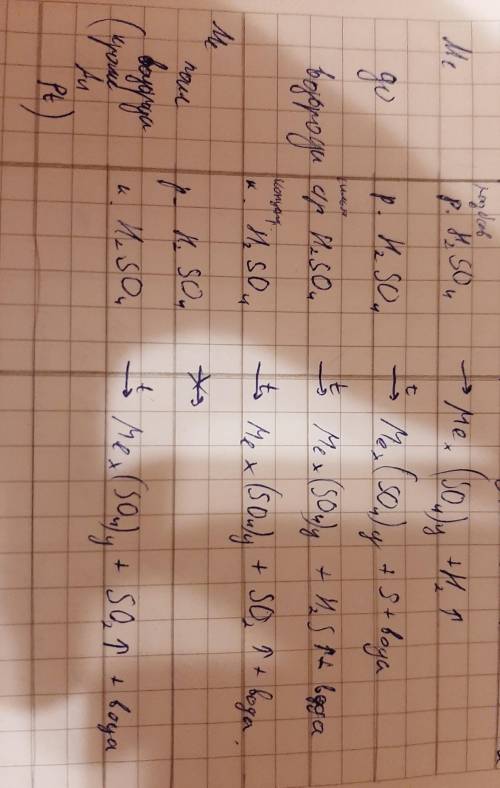 Me
р. H₂SO₄ → Meₓ(SO₄)y + H₂ ↑
до
р. H₂SO₄ →t Meₓ(SO₄)y + S + вода
водорода
ср H₂SO₄ →t Meₓ(SO₄)y + H₂S ↑ + вода
к. H₂SO₄ →t Meₓ(SO₄)y + SO₂ ↑ + вода.
Me
после
р- H₂SO₄ ↛
водорода
(кроме
Au
Pt)
к. H₂SO₄ →t Meₓ(SO₄)y + SO₂ ↑ + вода